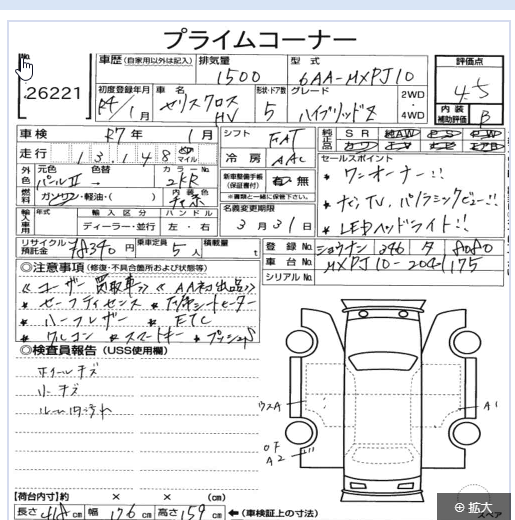 プライムコーナー
No.
26221
車歴 (自家用以外は記入)
排気量
1500
型式
6AA-MXPJ10
評価点
4.5
初度登録年月
R4/1月
車名
ヤリスクロス
HV
形状・ドア数
5
グレード
ハイブリッドZ
2WD
4WD
内装
補助評価
B
車検
R7年 1月
シフト
FAT
純正品
SR 純AW PS PW
カワ エアB
走行
13,148
マイル
冷房
AAC
セールスポイント
* ワンオーナー!!
外色
元色 色替
パールII→
カラーNo.
2KR
新車整備手帳
(保証書付)
有 無
※書類と一緒に保管下さい。
* ナビ,TV,パノラミックビュー!!
燃料
ガソリン・軽油・( )
内装色
名義変更期限
3月31日
* LEDヘッドライト!!
輸入車用
年式
輸入区分
ハンドル
ディーラー・並行
左・右
リサイクル預託金
円
乗車定員
5人
積載量
t
登録No.
ショウナン 346
8080
車台No.
MXPJ10-2041175
シリアルNo.
◎注意事項 (修復・不具合箇所および状態等)
《ユーザー買取車》《AA初出品》
* セーフティセンス * 
* ハーフレザー * ETC
* クルコン * スマートキー * プッシュst
◎検査員報告 (USS使用欄)
ホイールキズ
小キズ
ルーム内汚れ
ウスA
A1
A2
【荷台内寸】約 × × (cm)
長さ 418 cm 幅 176 cm 高さ 159 cm
←(車検証上の寸法)
スペア
拡大